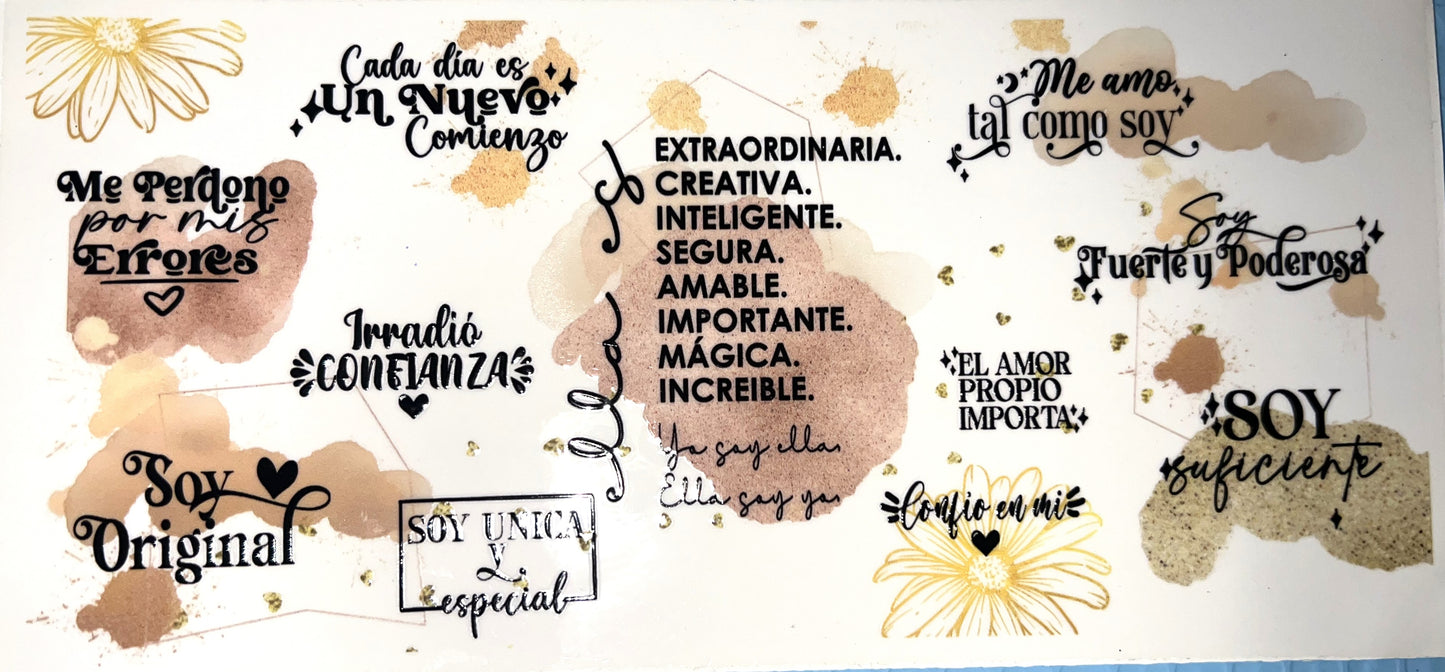 Cada día es
Un Nuevo
Comienzo
Me Perdono
por mis
Errores
Irradió
CONFIANZA
Soy
Original
SOY UNICA
y
especial
Ella es
EXTRAORDINARIA.
CREATIVA.
INTELIGENTE.
SEGURA.
AMABLE.
IMPORTANTE.
MÁGICA.
INCREIBLE.
Yo soy ella.
Ella soy yo.
Me amo
tal como soy
Soy
Fuerte y Poderosa
EL AMOR
PROPIO
IMPORTA
SOY
suficiente
Confio en mi